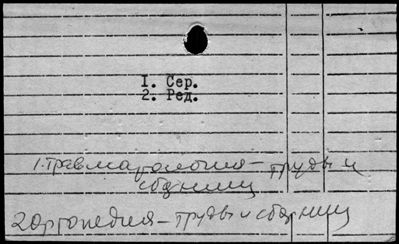 1. Сер.
2. Ред.
1. Травматология – труды и
сборники
2 Ортопедия – труды и сборники